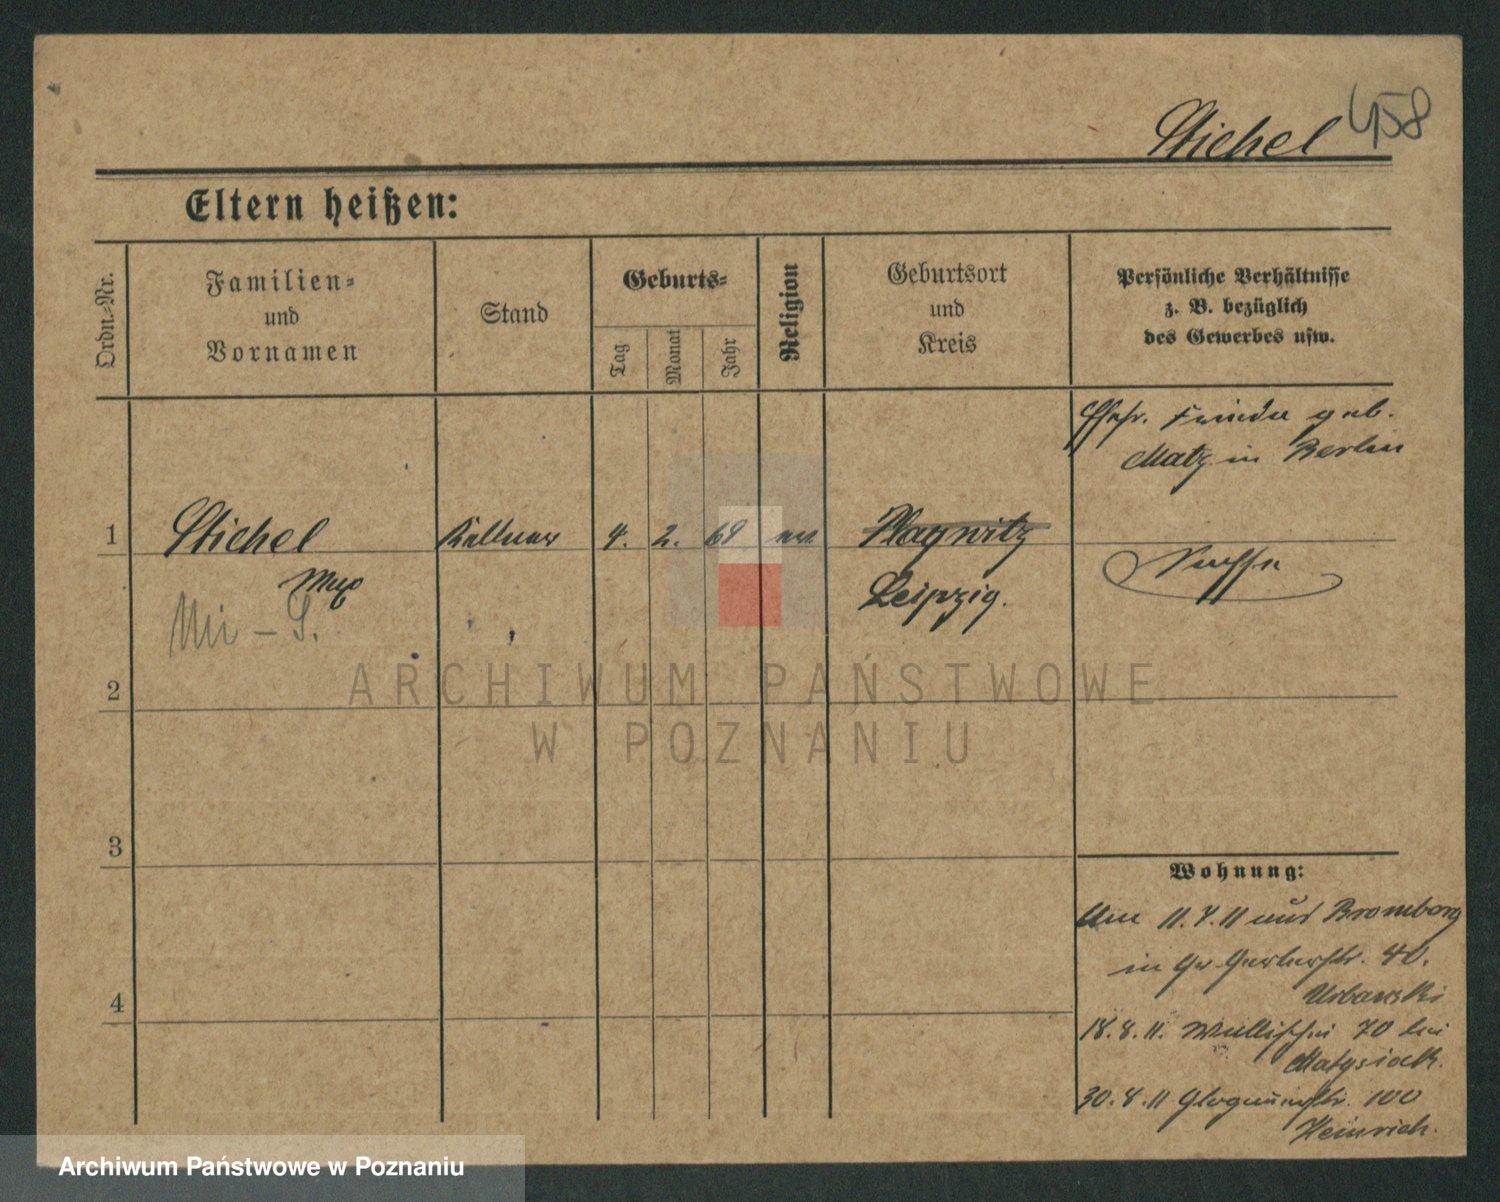 Stichel 458
Eltern heißen:
Ordn.=Nr.
Familien=
und
Vornamen
Stand
Geburts=
Tag
Monat
Jahr
Religion
Geburtsort
und
Kreis
Persönliche Verhältnisse
z. B. bezüglich
des Gewerbes usw.
Ehefr. Frieda geb.
Matz in Berlin
1 Stichel Kellner 4. 2. 69 ev. Plagwitz
Max
Leipzig.
Sachse
Mi - S.
2
3
4
Wohnung:
Am 11.7.11 aus Bromberg
in Gr Gerberstr. 40.
Urbanski
18.8.11. Wallischei 70 bei
Matysiak.
30.8.11 Glogauerstr. 100
Heinrich.
ARCHIWUM PAŃSTWOWE
W POZNANIU
Archiwum Państwowe w Poznaniu